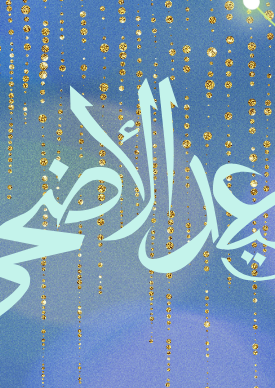 عيد الأضحى